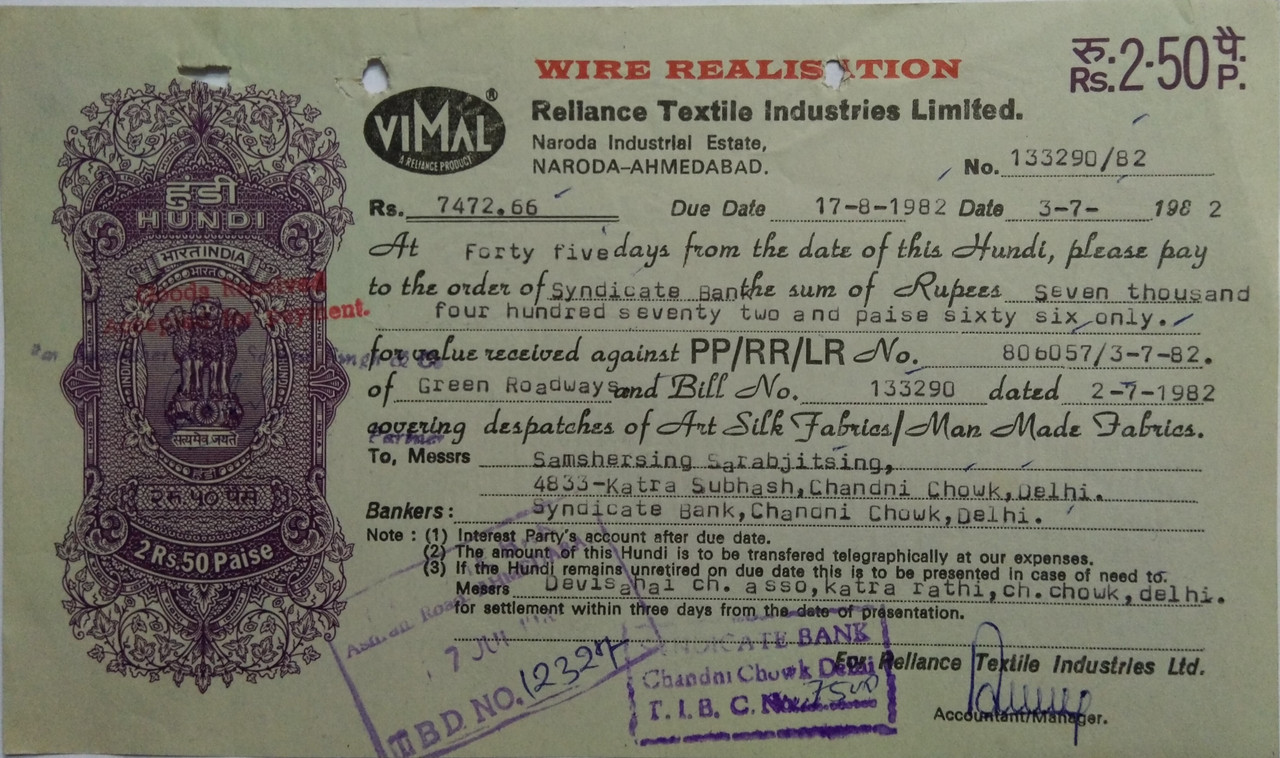 हुंडी
HUNDI
भारत INDIA
भारत
सत्यमेव जयते
२ रु. ५० पैसे
2 Rs. 50 Paise
Goods Received
Accepted for Payment.
VIMAL ®
A RELIANCE PRODUCT
WIRE REALISATION
रु. 2.50 पै.
Rs. P.
Reliance Textile Industries Limited.
Naroda Industrial Estate,
NARODA-AHMEDABAD.
No. 133290/82
Rs. 7472.66 Due Date 17-8-1982 Date 3-7- 198 2
At Forty five days from the date of this Hundi, please pay
to the order of Syndicate Bank the sum of Rupees Seven thousand
four hundred seventy two and paise sixty six only.
for value received against PP/RR/LR No. 806057/3-7-82.
of Green Roadways and Bill No. 133290 dated 2-7-1982
covering despatches of Art Silk Fabrics/Man Made Fabrics.
Partner
To, Messrs Samshersing Sarabjitsing,
4833-Katra Subhash, Chandni Chowk, Delhi.
Bankers: Syndicate Bank, Chandni Chowk, Delhi.
Note : (1) Interest Party's account after due date.
(2) The amount of this Hundi is to be transfered telegraphically at our expenses.
(3) If the Hundi remains unretired on due date this is to be presented in case of need to.
Messrs Devisahai ch. asso, katra rathi, ch. chowk, delhi.
for settlement within three days from the date of presentation.
For Reliance Textile Industries Ltd.
Accountant/Manager.
Road
BD. NO. 12327
SYNDICATE BANK
Chandni Chowk Delhi
T. I. B. C. No.